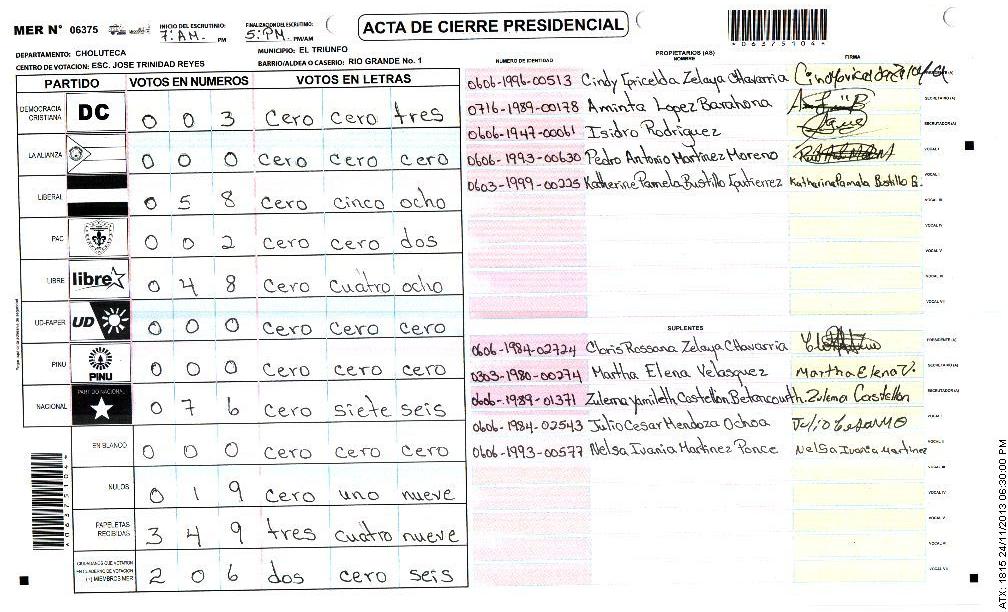 MER N° 06375
INICIO DEL ESCRUTINIO: 7:AM. PM
FINALIZACION DEL ESCRUTINIO: 5:PM. PM/AM
ACTA DE CIERRE PRESIDENCIAL
* 0 6 3 7 5 1 0 4 *
DEPARTAMENTO: CHOLUTECA
MUNICIPIO: EL TRIUNFO
CENTRO DE VOTACION: ESC. JOSE TRINIDAD REYES
BARRIO/ALDEA O CASERIO: RIO GRANDE No. 1
PARTIDO VOTOS EN NUMEROS VOTOS EN LETRAS
DEMOCRACIA CRISTIANA DC 0 0 3 cero cero tres
LA ALIANZA 0 0 0 cero cero cero
LIBERAL 0 5 8 cero cinco ocho
PAC 0 0 2 cero cero dos
LIBRE libre 0 4 8 cero cuatro ocho
UD-FAPER UD 0 0 0 cero cero cero
PINU PINU 0 0 0 cero cero cero
NACIONAL PARTIDO NACIONAL 0 7 6 cero siete seis
EN BLANCO 0 0 0 cero cero cero
NULOS 0 1 9 cero uno nueve
PAPELETAS RECIBIDAS 3 4 9 tres cuatro nueve
CIUDADANOS QUE VOTARON EN CUADERNO DE VOTACION (+) MIEMBROS MER 2 0 6 dos cero seis
PROPIETARIOS (AS)
NUMERO DE IDENTIDAD NOMBRE FIRMA
0606-1996-00513 Cindy Gricelda Zelaya Chavarria PRESIDENTE (A)
0716-1989-00178 Aminta Lopez Barahona SECRETARIO (A)
0606-1947-00061 Isidro Rodriguez ESCRUTADOR (A)
0606-1993-00630 Pedro Antonio Martinez Moreno VOCAL I
0603-1999-00225 Katherine Pamela Bustillo Gutierrez Katherine Pamela Bustillo G. VOCAL II
VOCAL III
VOCAL IV
VOCAL V
VOCAL VI
VOCAL VII
SUPLENTES
0606-1984-02724 Cloris Rossana Zelaya Chavarria PRESIDENTE (A)
0303-1980-00274 Martha Elena Velasquez Martha Elena V. SECRETARIO (A)
0606-1989-01371 Zulema Yamileth Castellon Betancourth. Zulema Castellon ESCRUTADOR (A)
0606-1984-02543 Julio Cesar Mendoza Ochoa Julio Cesar MO VOCAL I
0606-1993-00577 Nelsa Ivania Martinez Ponce Nelsa Ivania Martinez VOCAL II
VOCAL III
VOCAL IV
VOCAL V
VOCAL VI
VOCAL VII
ATX: 1815 24/11/2013 06:30:00 PM